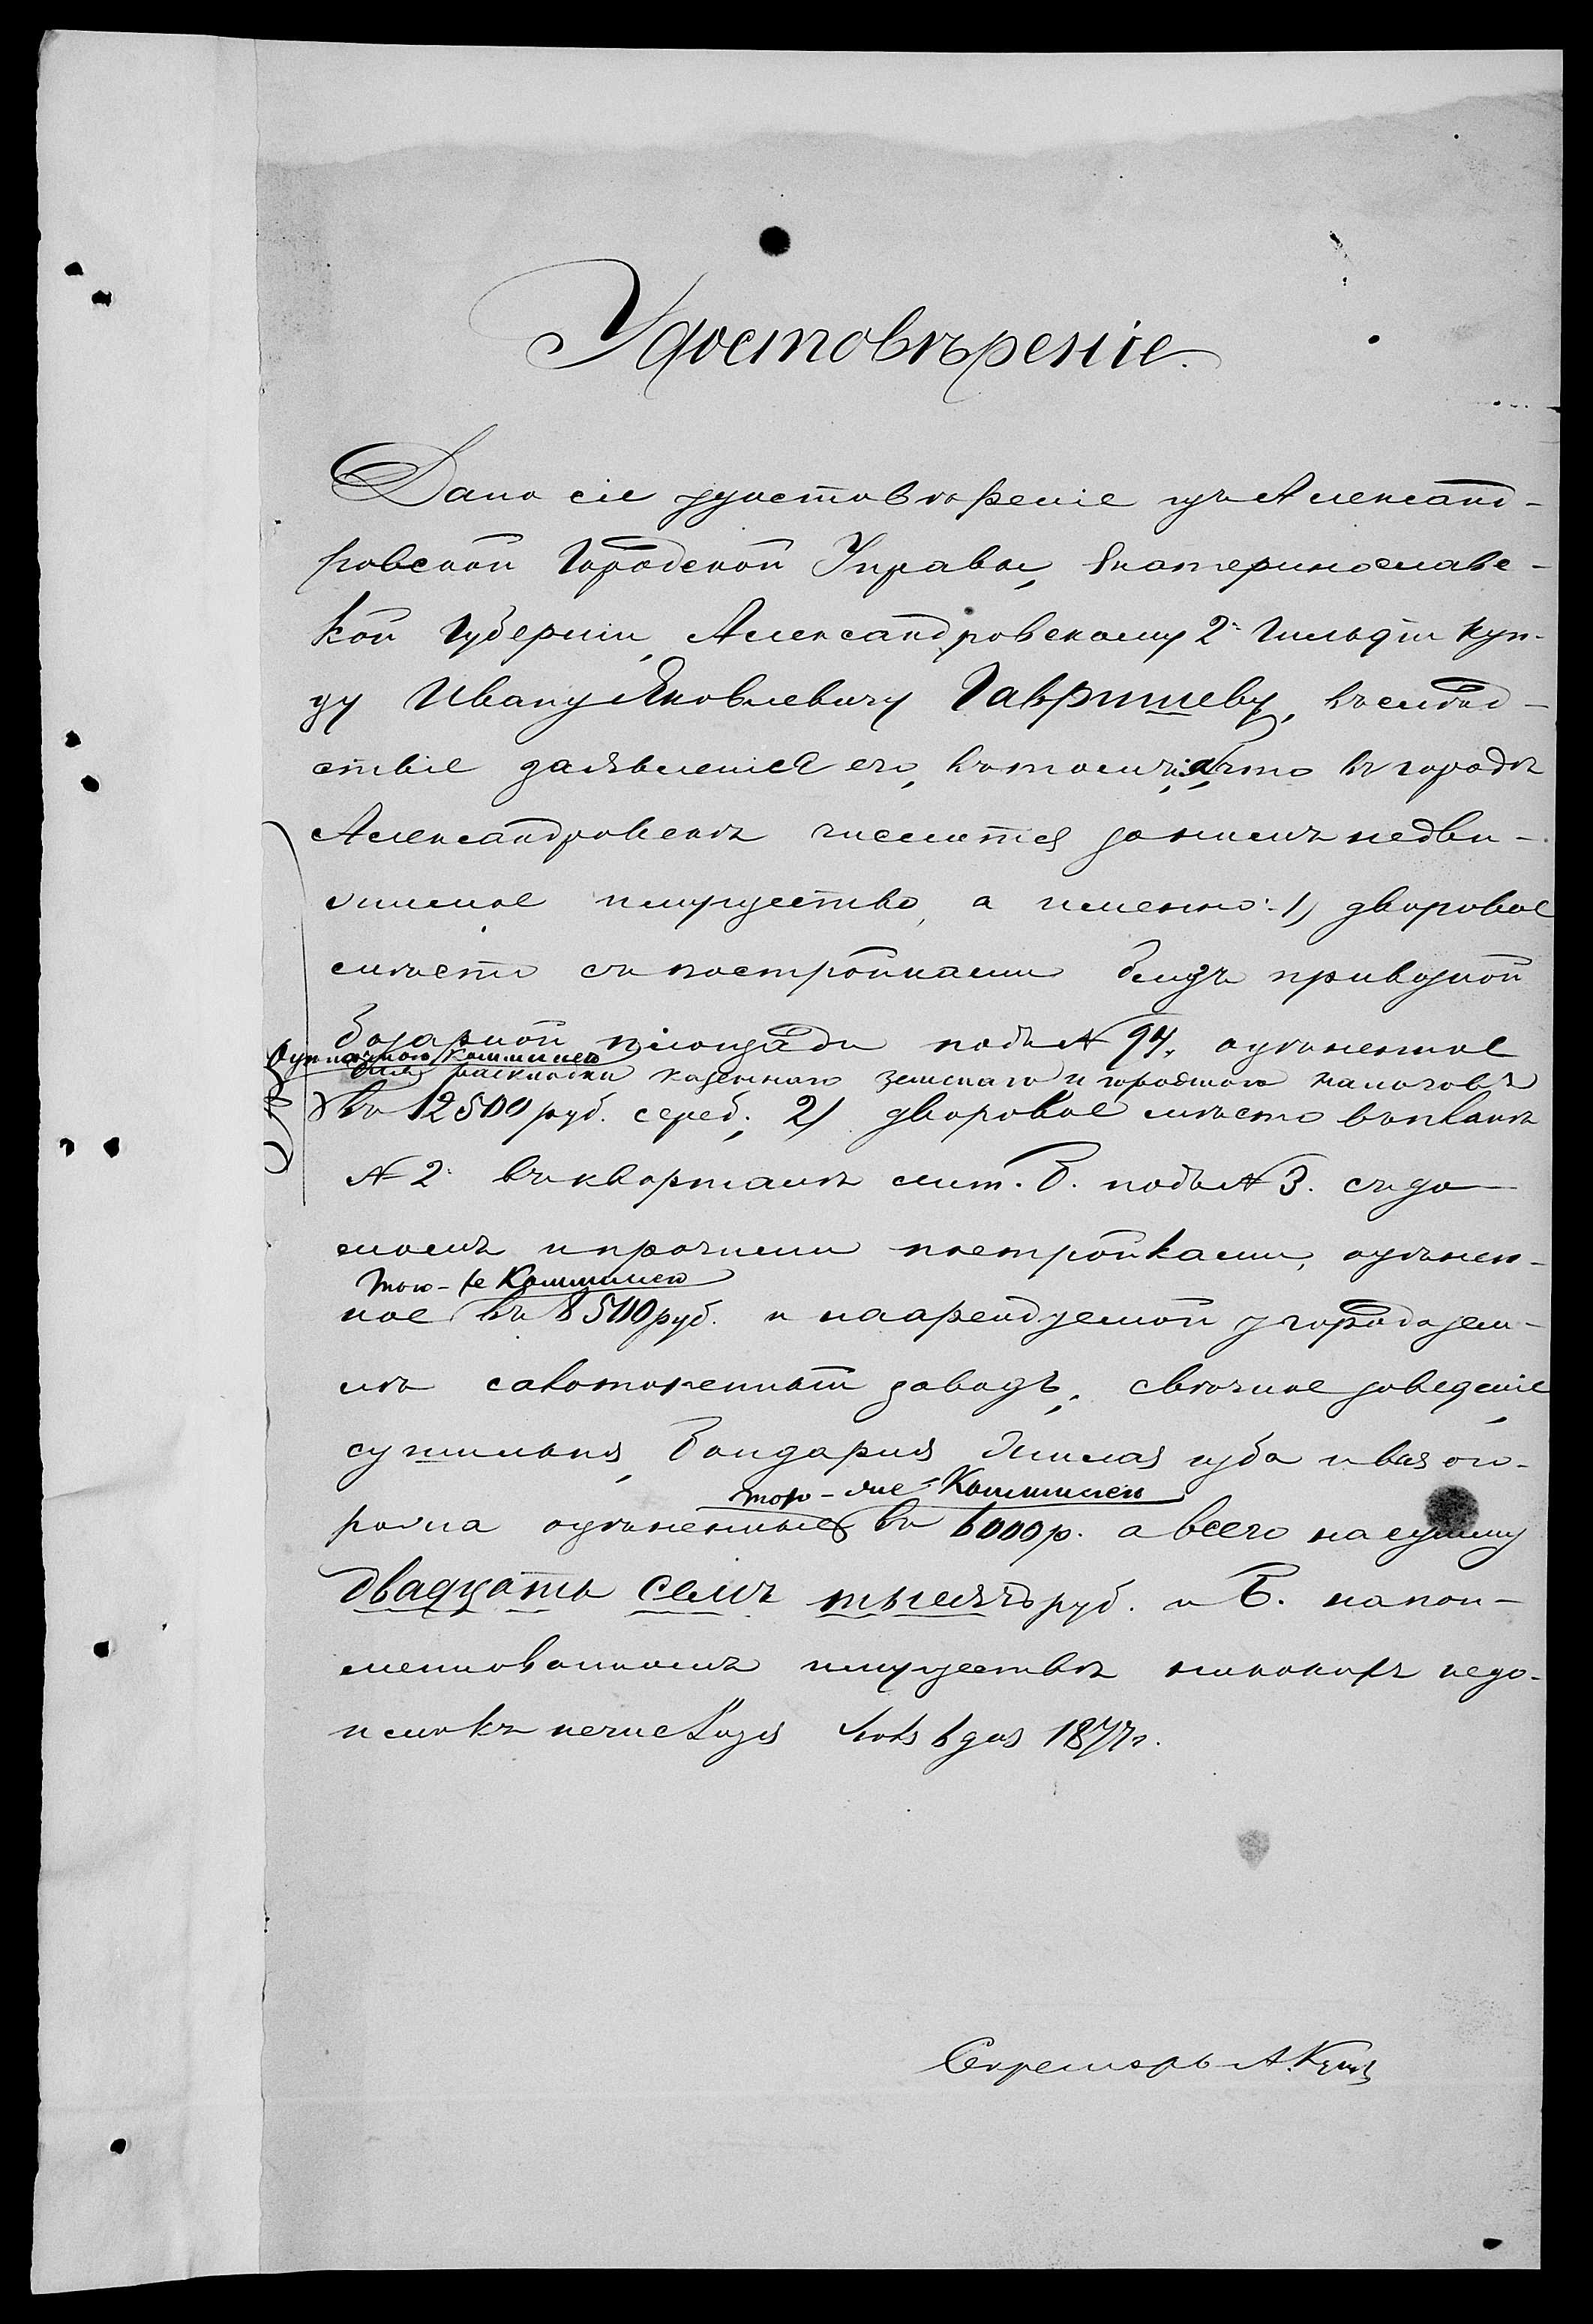 Удостовѣреніе.
Дано сіе удостовѣреніе изъ Александ-
ровской Городской Управы, Екатеринославс-
кой Губерніи, Александровскому 2й Гильдіи Куп-
цу Ивану Яковлевичу Гавришеву, въслѣд-
ствіе заявленія его, въ томъ, что въ городѣ
Александровскѣ числится за нимъ недви-
жимое имущество, а именно: 1) дворовое
мѣсто съ постройками близъ привозной
базарной площади подъ № 94, оцѣненное
Оцѣночною Коммисіею
для раскладки казеннаго земскаго и городскаго налоговъ
въ 12500 руб. сереб; 2) дворовое мѣсто въ планѣ
№ 2й въ кварталѣ лит. Б. подъ № 3. съ до-
момъ и прочими постройками, оцѣнен-
тою-же Коммисіею
ное въ 8500 руб. и на арендуемой у города зем-
лѣ салотопенный заводъ, свѣчное заведеніе
сушильня, Бондарня жилая изба и вся ого-
тою-же Коммисіею
рожа оцѣненные въ 6000 р. а всего на сумму
двадцать семь тысячъ руб. и Б. на пои-
менованномъ имуществѣ никакихъ недо-
имокъ не числится 1877 г.
Секретарь А.